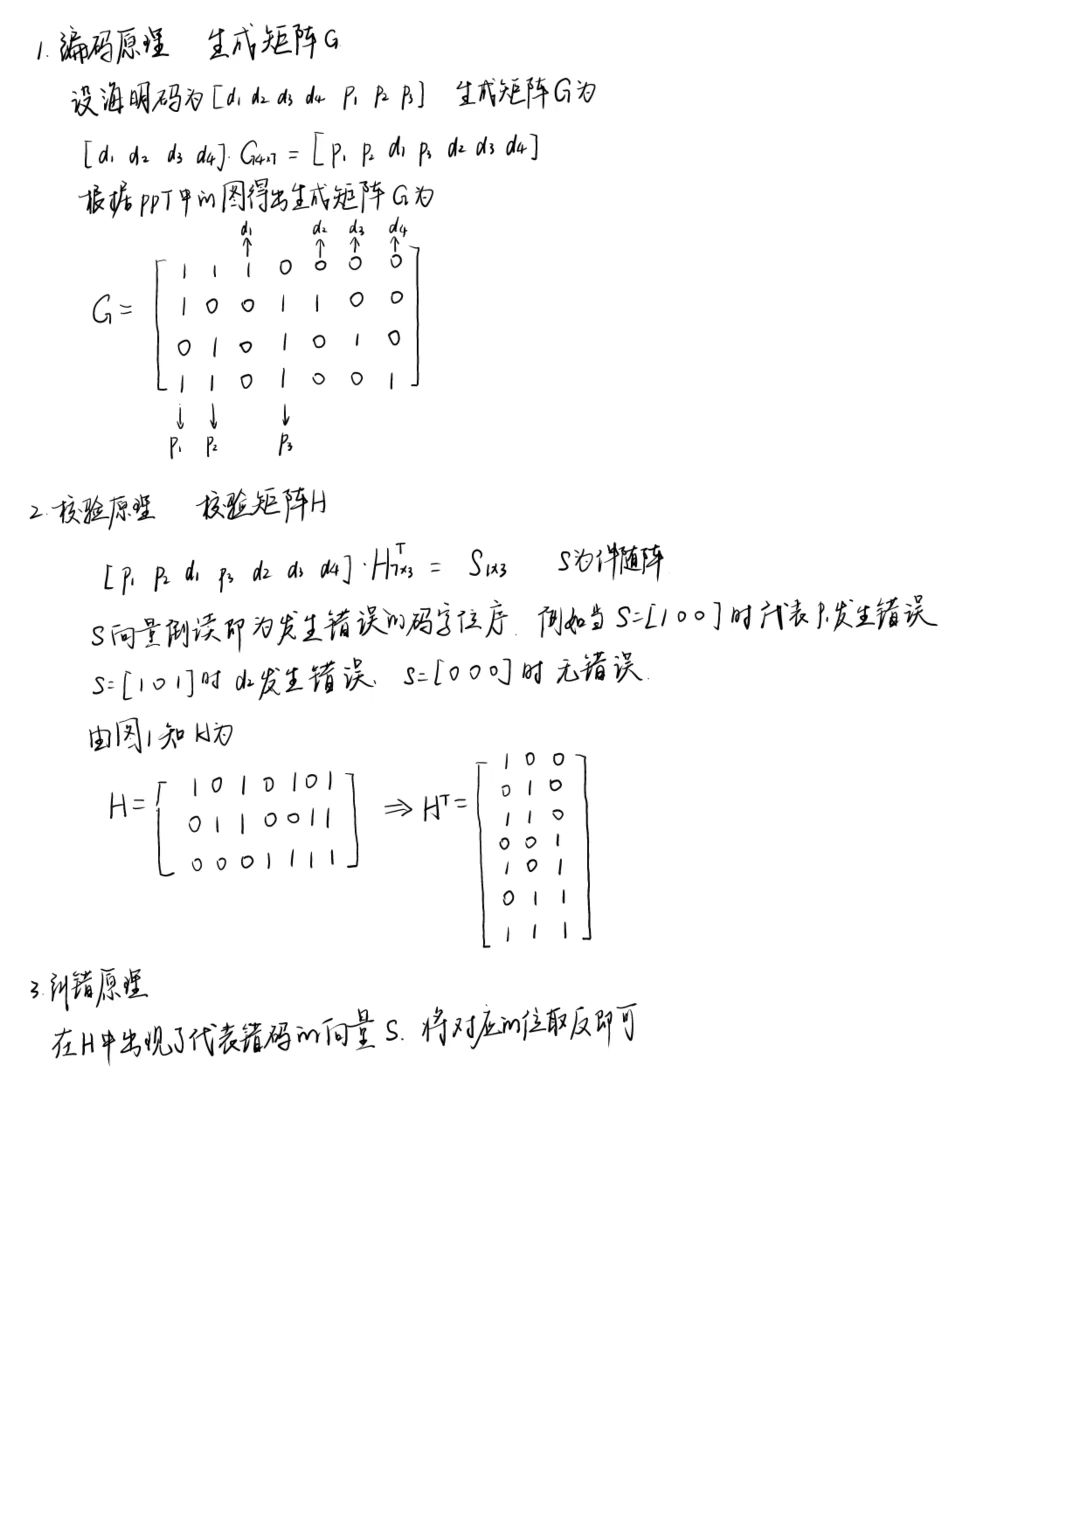 1. 编码原理 生成矩阵G
设海明码为[d₁ d₂ d₃ d₄ p₁ p₂ p₃] 生成矩阵G为
[d₁ d₂ d₃ d₄]·G₄ₓ₇ = [p₁ p₂ d₁ p₃ d₂ d₃ d₄]
根据PPT中的图得出生成矩阵G为
d₁ d₂ d₃ d₄
↑ ↑ ↑ ↑
1 1 1 0 0 0 0
G= 1 0 0 1 1 0 0
0 1 0 1 0 1 0
1 1 0 1 0 0 1
↓ ↓ ↓
p₁ p₂ p₃
2. 校验原理 校验矩阵H
[p₁ p₂ d₁ p₃ d₂ d₃ d₄]·Hᵀ₇ₓ₃ = S₁ₓ₃ S为伴随阵
S向量倒读即为发生错误的码字位序. 例如当S=[1 0 0]时代表p₁发生错误
S=[1 0 1]时d₂发生错误. S=[0 0 0]时无错误.
由图1知H为
H= 1 0 1 0 1 0 1 ⇒ Hᵀ= 1 0 0
0 1 1 0 0 1 1 0 1 0
0 0 0 1 1 1 1 1 1 0
0 0 1
1 0 1
0 1 1
1 1 1
3. 纠错原理
在H中出现了代表错码的向量S. 将对应的位取反即可